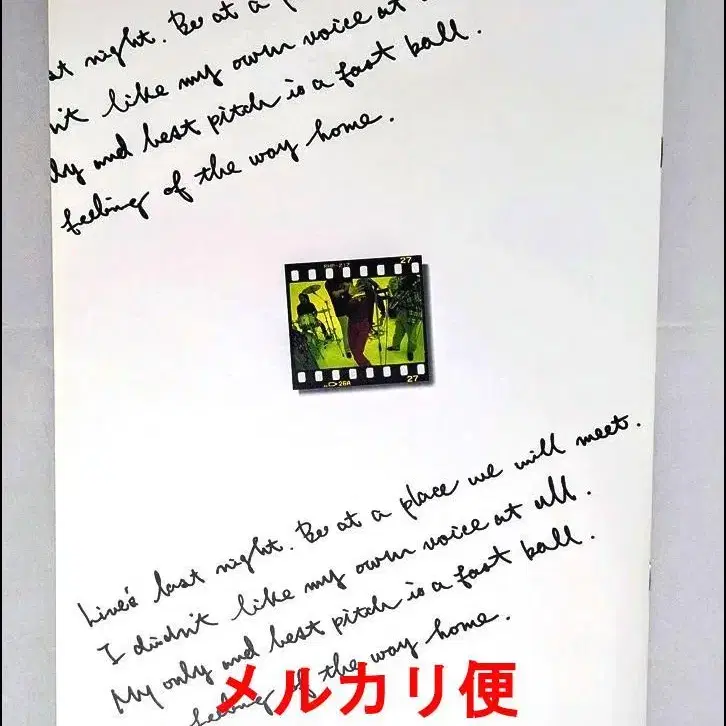 at night. Be at a
n't like my own voice at
ly and best pitch is a fast ball.
feeling of the way home.
RHP-217 27
26A 27
Live's last night. Be at a place we will meet.
I didn't like my own voice at all.
My only and best pitch is a fast ball.
feeling of the way home.
メルカリ便